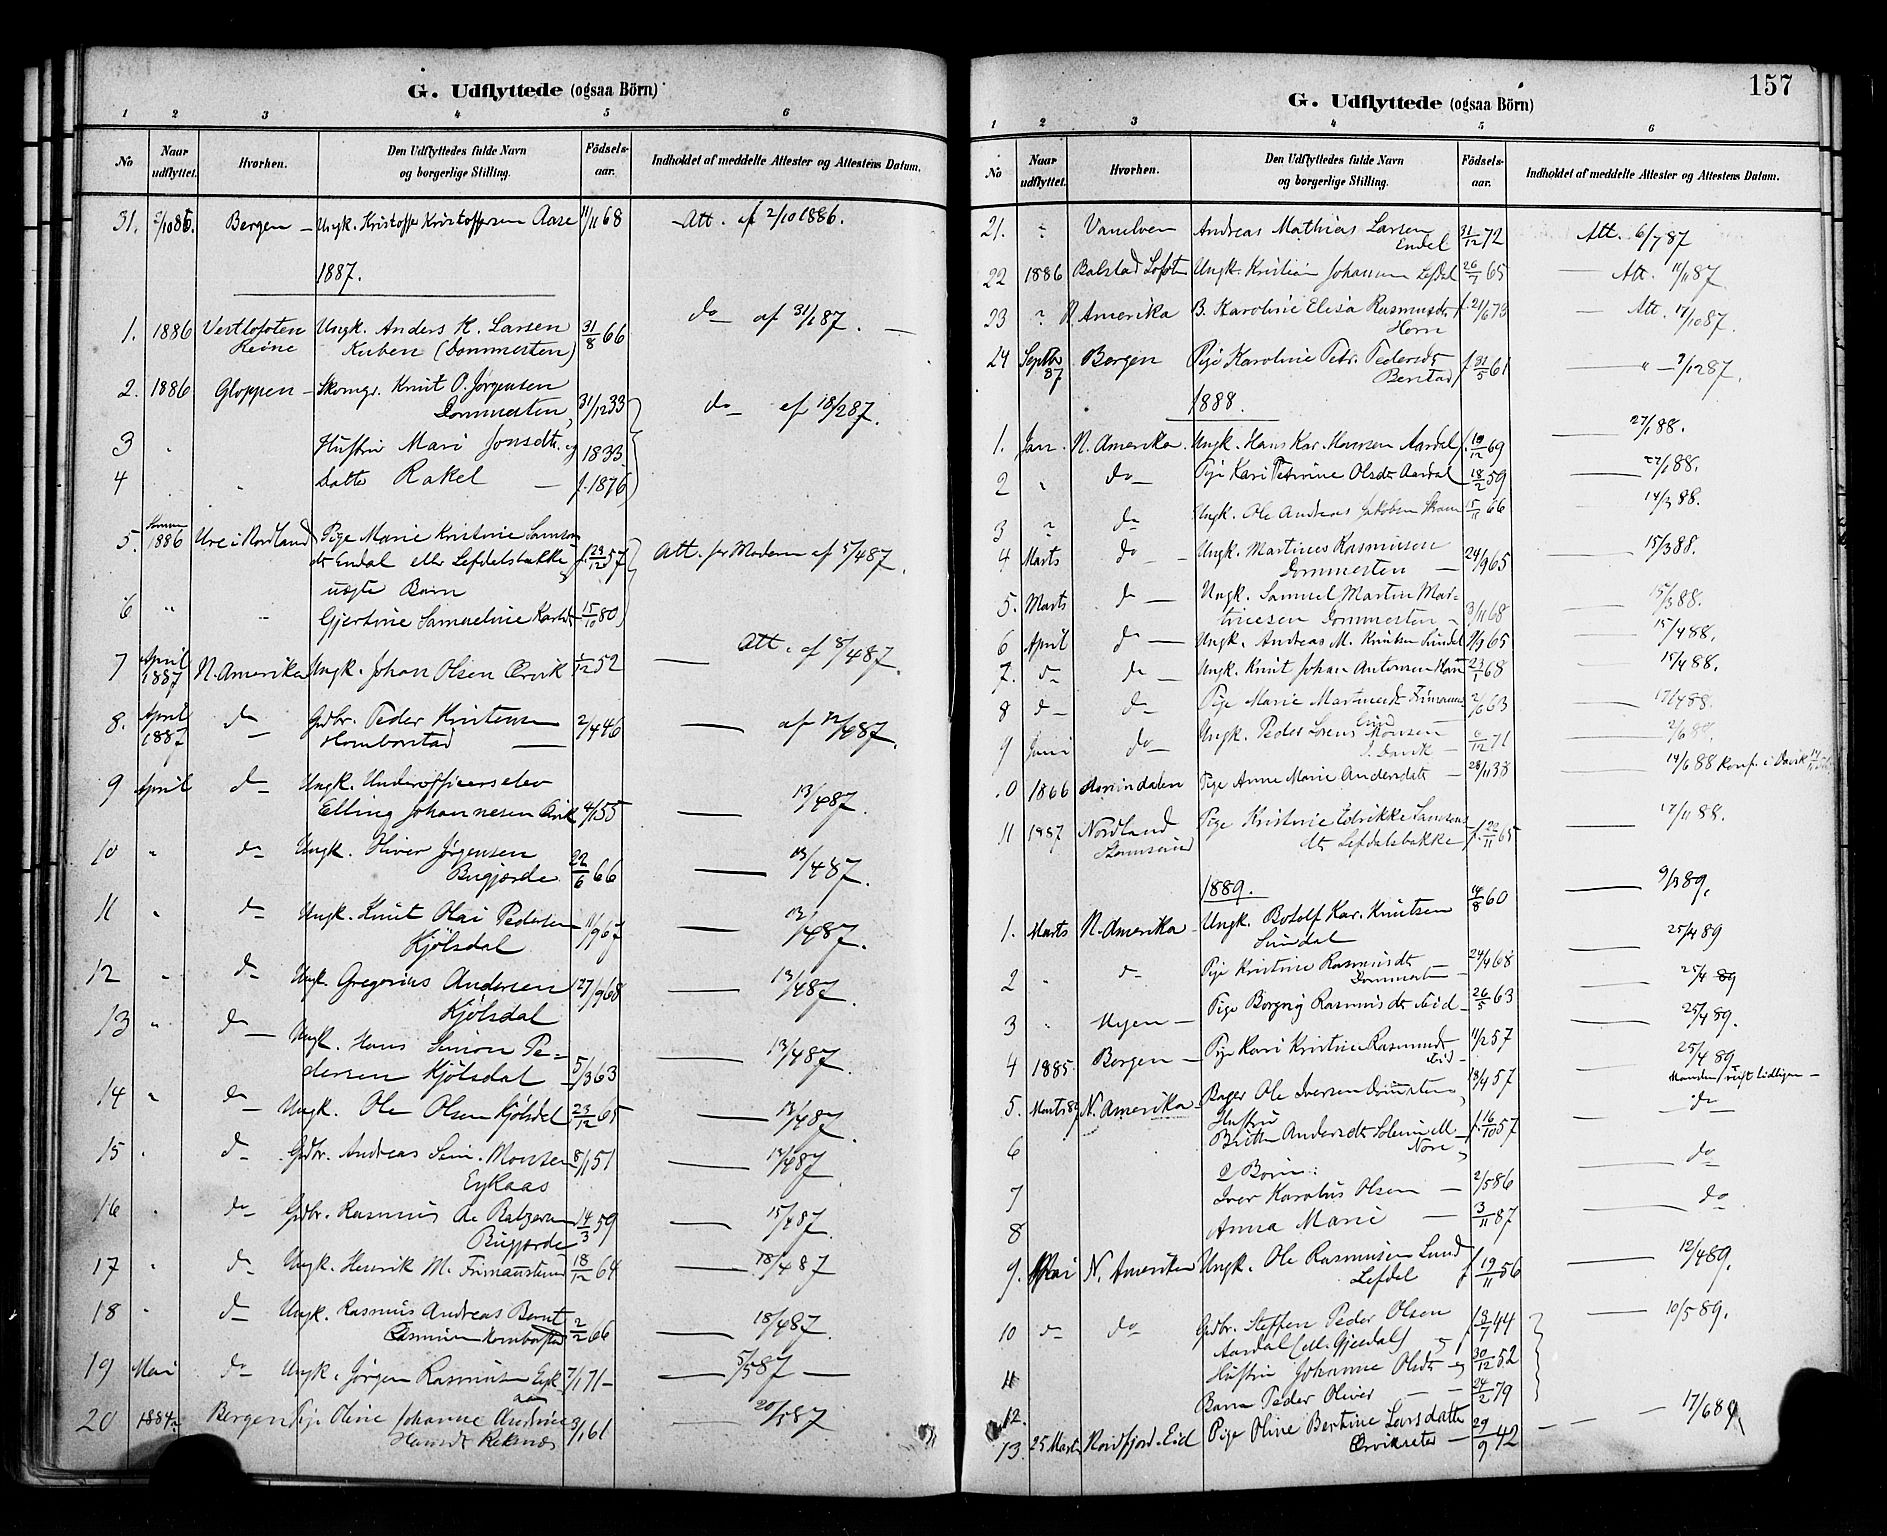 G. Udflyttede (ogsaa Börn)
1 2 3 4 5 6
No Naar udflyttet. Hvorhen. Den Udflyttedes fulde Navn og borgerlige Stilling. Födsels-aar. Indholdet af meddelte Attester og Attestens Datum.
31. 2/10 86. Bergen – Ungk. Kristoffer Kristoffersen Aase 11/11 68 Att. af 2/10 1886.
1887.
1. 1886 Vestlofoten Ungk. Anders K. Larsen 31/8 66 do af 31/1 87.
Reine Kuben (Dommersten)
2. 1886 Gloppen – Skomgr. Knut P. Jørgensen
Dommersten, 31/12 33 do af 18/2 87.
3 " Hustru Mari Jonsdtr. og 1833
4 " Datter Rakel f. 1876
5. 1886 Ure i Nordland Pige Marie Kristine Samsons
dtr Endal eller Lefdalsbakke f. 23/12 57 Att. for Moderen af 5/4 87.
uægte Barn
6 " Gjertine Samueline Karlsdtr 15/10 80
7 April 1887 N. Amerika Ungk. Johan Olsen Ørvik 1/12 52 Att. af 8/4 87.
8. April 1887 do Gdbr. Peder Kristensen 2/4 46 af 12/4 87.
Hombonstad
9 April do Ungk. Underofficerselev
Elling Johannesen Ørvik 4/1 55 13/4 87.
10 " do Ungk. Iver Jørgensen
Bugjerde 22/6 66 13/4 87.
11 " do Ungk. Knut Olai Pedersen 11/9 67 13/4 87.
Kjølsdal
12 " do Ungk. Gregorius Andersen 27/9 68 13/4 87.
Kjølsdal
13 " do Ungk. Hans Simon Pe-
dersen Kjølsdal 5/3 63 13/4 87.
14 " do Ungk. Ole Olsen Kjølsdal 23/12 65 13/4 87.
15 " do Gdbr. Andreas Sim. Monsen 8/1 51 14/4 87
Eykaas
16 " do Gdbr. Rasmus A. Balzersen 14/3 59 15/4 87.
Bugjerde
17 " do Ungk. Henrik M. Frimansten 18/12 64 18/4 87
18 " do Ungk. Rasmus Andreas Bernt
Rasmusen Hombonstad 2/2 66 18/4 87.
19 Mai do Ungk. Jørgen Rasmusen Eyk 7/1 71 – 5/5 87
aas
20 1884 Bergen Pige Oline Johanne Andrine 3/1 61 20/5 87
Hansdtr Reksnæs
157
G. Udflyttede (ogsaa Börn)
1 2 3 4 5 6
No Naar udflyttet. Hvorhen. Den Udflyttedes fulde Navn og borgerlige Stilling. Födsels-aar. Indholdet af meddelte Attester og Attestens Datum.
21. " Vanelven Andreas Mathias Larsen 31/12 72 Att. 6/7 87
Endal
22 1886 Balstad Lofoten Ungk. Kristian Johansen Lefdal 26/7 65 Att. 11/11 87
23 ? N. Amerika B. Karoline Elisa Rasmusdtr f. 21/6 73 Att. 17/10 87.
Horn
24 Septbr 87 Bergen Pige Karoline Petr. Pedersdtr f. 31/5 61 " 9/12 87.
Berstad
1888.
1. Jan. N. Amerika. Ungk. Hans Kar. Hansen Aardal f. 19/12 69 27/1 88.
2 " do Pige Kari Petrine Olsdtr Aardal 18/2 59 27/1 88.
3 " do Ungk. Ole Andreas Jakobsen Skram 5/11 66 14/3 88.
4 Marts do Ungk. Martines Rasmussen 24/9 65 15/3 88.
Dommersten
5. Marts do Ungk. Samuel Martin Mar-
tinesen Dommersten 3/11 68 15/3 88.
6 April do Ungk. Andreas M. Knutsen Lundal 7/9 65 15/4 88.
7. do do Ungk. Knut Johan Antonsen Horn 23/1 68 15/4 88.
8 do do Pige Marie Martinesdtr 2/6 63 17/4 88.
9 Juni do Ungk. Peder Lorens Monsen 6/12 71 2/6 88.
10 1866 Pige Anne Marie Andersdatr – 28/11 38 14/6 88 Konf. i Davik
11 1887 Nordland Pige Kristine Edvikke Samsons
dtr Lefdalsbakke f. 22/11 65 17/11 88.
1889. 9/3 89.
1. Marts N. Amerika – Ungk. Botolf Kar. Knutsen 14/8 60
Lundal 25/4 89
2 " do Pige Kristine Rasmusdtr 24/4 68
Dommersten 25/4 89
3 " Hyen – Pige Borgny Rasmusdtr Eid – 26/5 63 25/4 89.
4 1885. Bergen – Pige Kari Kristine Rasmusdtr 11/2 57 25/4 89
Eid –
5. Marts 89 N. Amerika – Bager Ole Iversen Dommersten, 18/4 57 Manden
6 Hustru
Britha Andersdtr Solheim f. 16/10 57 do
Nore,
2 Børn:
7 Iver Karolus Olsen 2/5 86 do
8 Anna Marie 3/11 87 do
9. Mai N. Amerika Ungk. Ole Rasmusen Lund 12/4 89.
Lefdal f. 19/11 56
10 do do Gdbr. Steffen Peder Olsen f. 18/7 44 10/5 89.
Aardal (ell. Gjerdal)
11 Hustru Johanne Olsdtr og 30/12 52
12. Barn Peder Oliver 24/2 79
13. 25 Marts Nordfjord-Eid Pige Oline Bertine Larsdatter 29/9 42 17/6 89
Ørvikseter